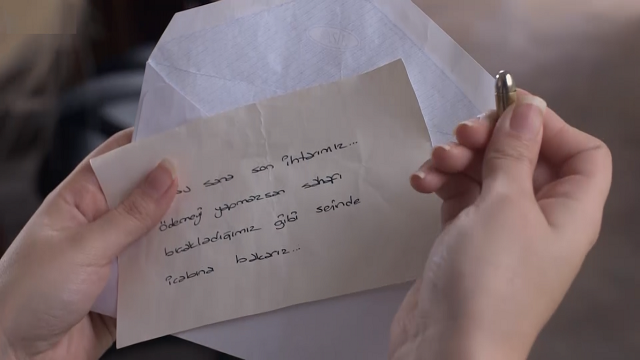 sana son ihtarımız...
ödemeyi yapmazsan sahapı
bıçakladığımız gibi seninde
icabına bakarız...